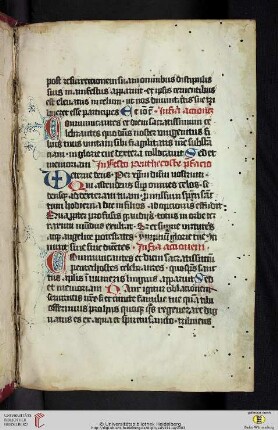 post resurrectionem suam omnibus discipulis
suis manifestus apparuit · et ipsis cernentibus
est eleuatus in celum · ut nos diuinitatis sue tri
bueret esse participes Et iō Infra actionē
Communicantes et diem sacratissimum ce
lebrantes quo dn̄s noster vnigenitus fi
lius tuus vnitam sibi fragilitatis nr̄e sub
stanciam · in glorie tue dextera collocauit Sed et
memoriam In festo penthecostes p̄facio
Eterne deus · Per xp̄m dn̄m nostrum ·
Qui ascendens sup̄ omnes celos · se
densq̄ ad dexteram tuam · p̄missum sp̄m sāc
tum hodierna die in filios adoptionis effudit
Quapropter profusis gaudijs · totus in orbe ter
rarum mūdus exultat · Sed et supne virtutes
atq̄ angelice potestates · ympnū glorie tue
sine fine dicētes · Infra actionem
Communicantes et diem sacratissimū
penthecostes celebrantes · quo sp̄s sanc
tus apl̄is innumeris linguis apparuit Sed
et memoriam Hanc igitur oblacionem
seruitutis nr̄e s et cuncte familie tue qua tibi
offerimus pro hijs quoq̄ quos regenerare dig
natus es ex aqua et spiritu sancto · tribuens